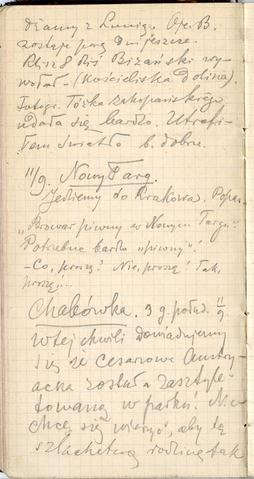 znamy z Lunią. Ope. B.
zostaje parę dni jeszcze.
Klisz 8 Bizański wy-
wołał – (Kościeliska Dolina).
Fotogr. Tośka zakopiańskiego
udała się bardzo. Utrafi-
łem światło b. dobre.
11/9. Nowy Targ.
Jedziemy do Krakowa.
"Browar piwny w Nowym Targu"
Potrzebne bardzo "piwny"!
– Co, proszę? Nie, proszę! Tak,
proszę....
Chabówka. 3 g. połud. 11/9
W tej chwili dowiadujemy
się że cesarzowa Austry-
acka została zasztyle-
towaną w parku! Nie
chcę się wierzyć, aby tę
szlachetną rodzinę tak